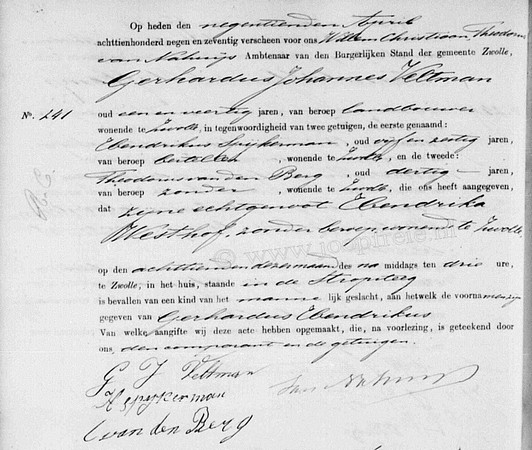 Op heden den negentienden April
achttienhonderd negen en zeventig verscheen voor ons Willem Christiaan Theodorus
van Nahuijs Ambtenaar van den Burgerlijken Stand der gemeente Zwolle,
Gerhardus Johannes Veltman
No. 241
oud een en veertig jaren, van beroep landbouwer
wonende te Zwolle, in tegenwoordigheid van twee getuigen, de eerste genaamd:
Ebendrikus Spijkerman, oud vijf en zestig jaren,
van beroep , wonende te Zwolle, en de tweede:
Theodorus van den Berg, oud dertig jaren,
van beroep zonder, wonende te Zwolle, die ons heeft aangegeven,
dat zijne echtgenoot Ebendrika
Westhof, zonder beroep, wonend te Zwolle
© www.joopifiele.nl
op den achttienden dezer maand des na middags ten drie ure,
te Zwolle, in het huis, staande in de Stropsteeg
is bevallen van een kind van het mannelijk geslacht, aan hetwelk de voornamen zijn
gegeven van Gerhardus Ebendrikus
Van welke aangifte wij deze acte hebben opgemaakt, die, na voorlezing, is geteekend door
ons, den comparant en de getuigen.
G J Veltman
H Spijkerman
van den Berg